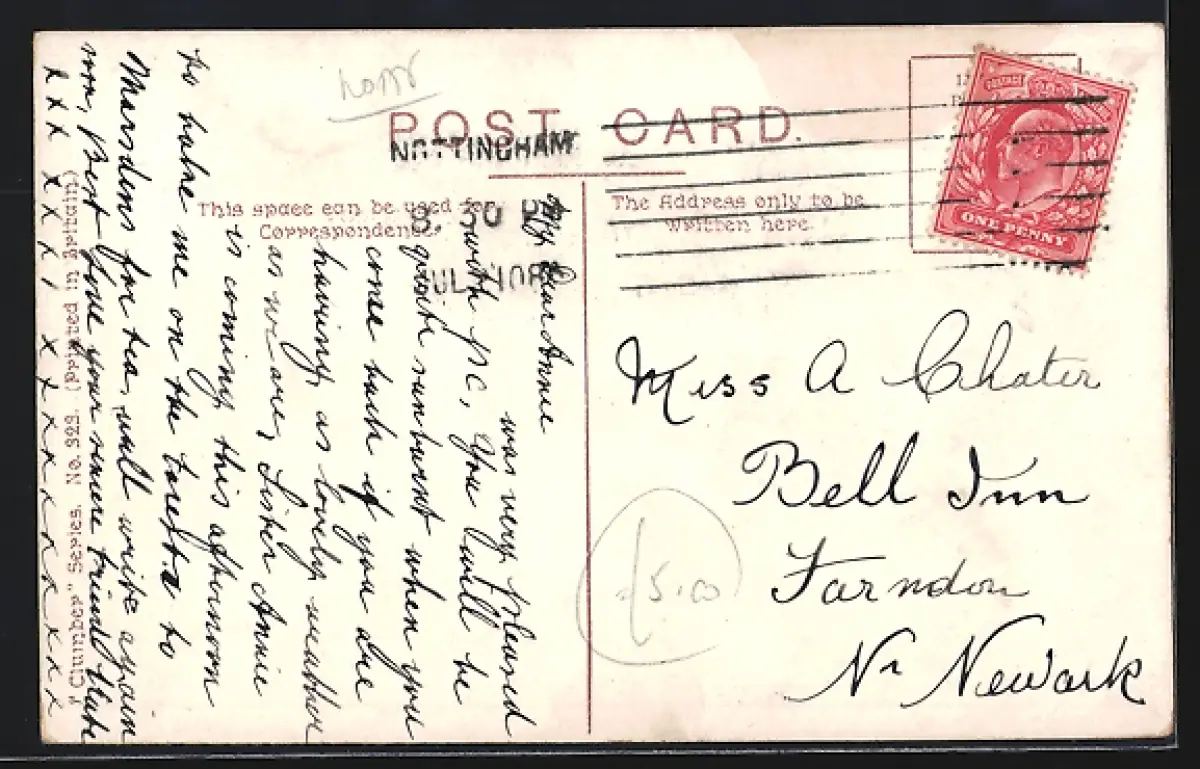 horr
POST CARD.
NOTTINGHAM
3 30 P
JUL 10 8
This space can be used for
Correspondence.
The Address only to be
written here.
ONE PENNY
POSTAGE
My Dear Annie
was very pleased
with pc, you will be
quite sunburnt when you
come back if you are
having as lovely weather
as we are, Sister Annie
is coming this afternoon
to take me on the to
Marsdens for tea, will write again
soon, Best love your sincere friend
x x x x x x x x x x x x x x x x x
"Clumber" Series. No. 323. (Printed in Britain)
Miss A Chater
Bell Inn
Farndon
Nr Newark
£5.00